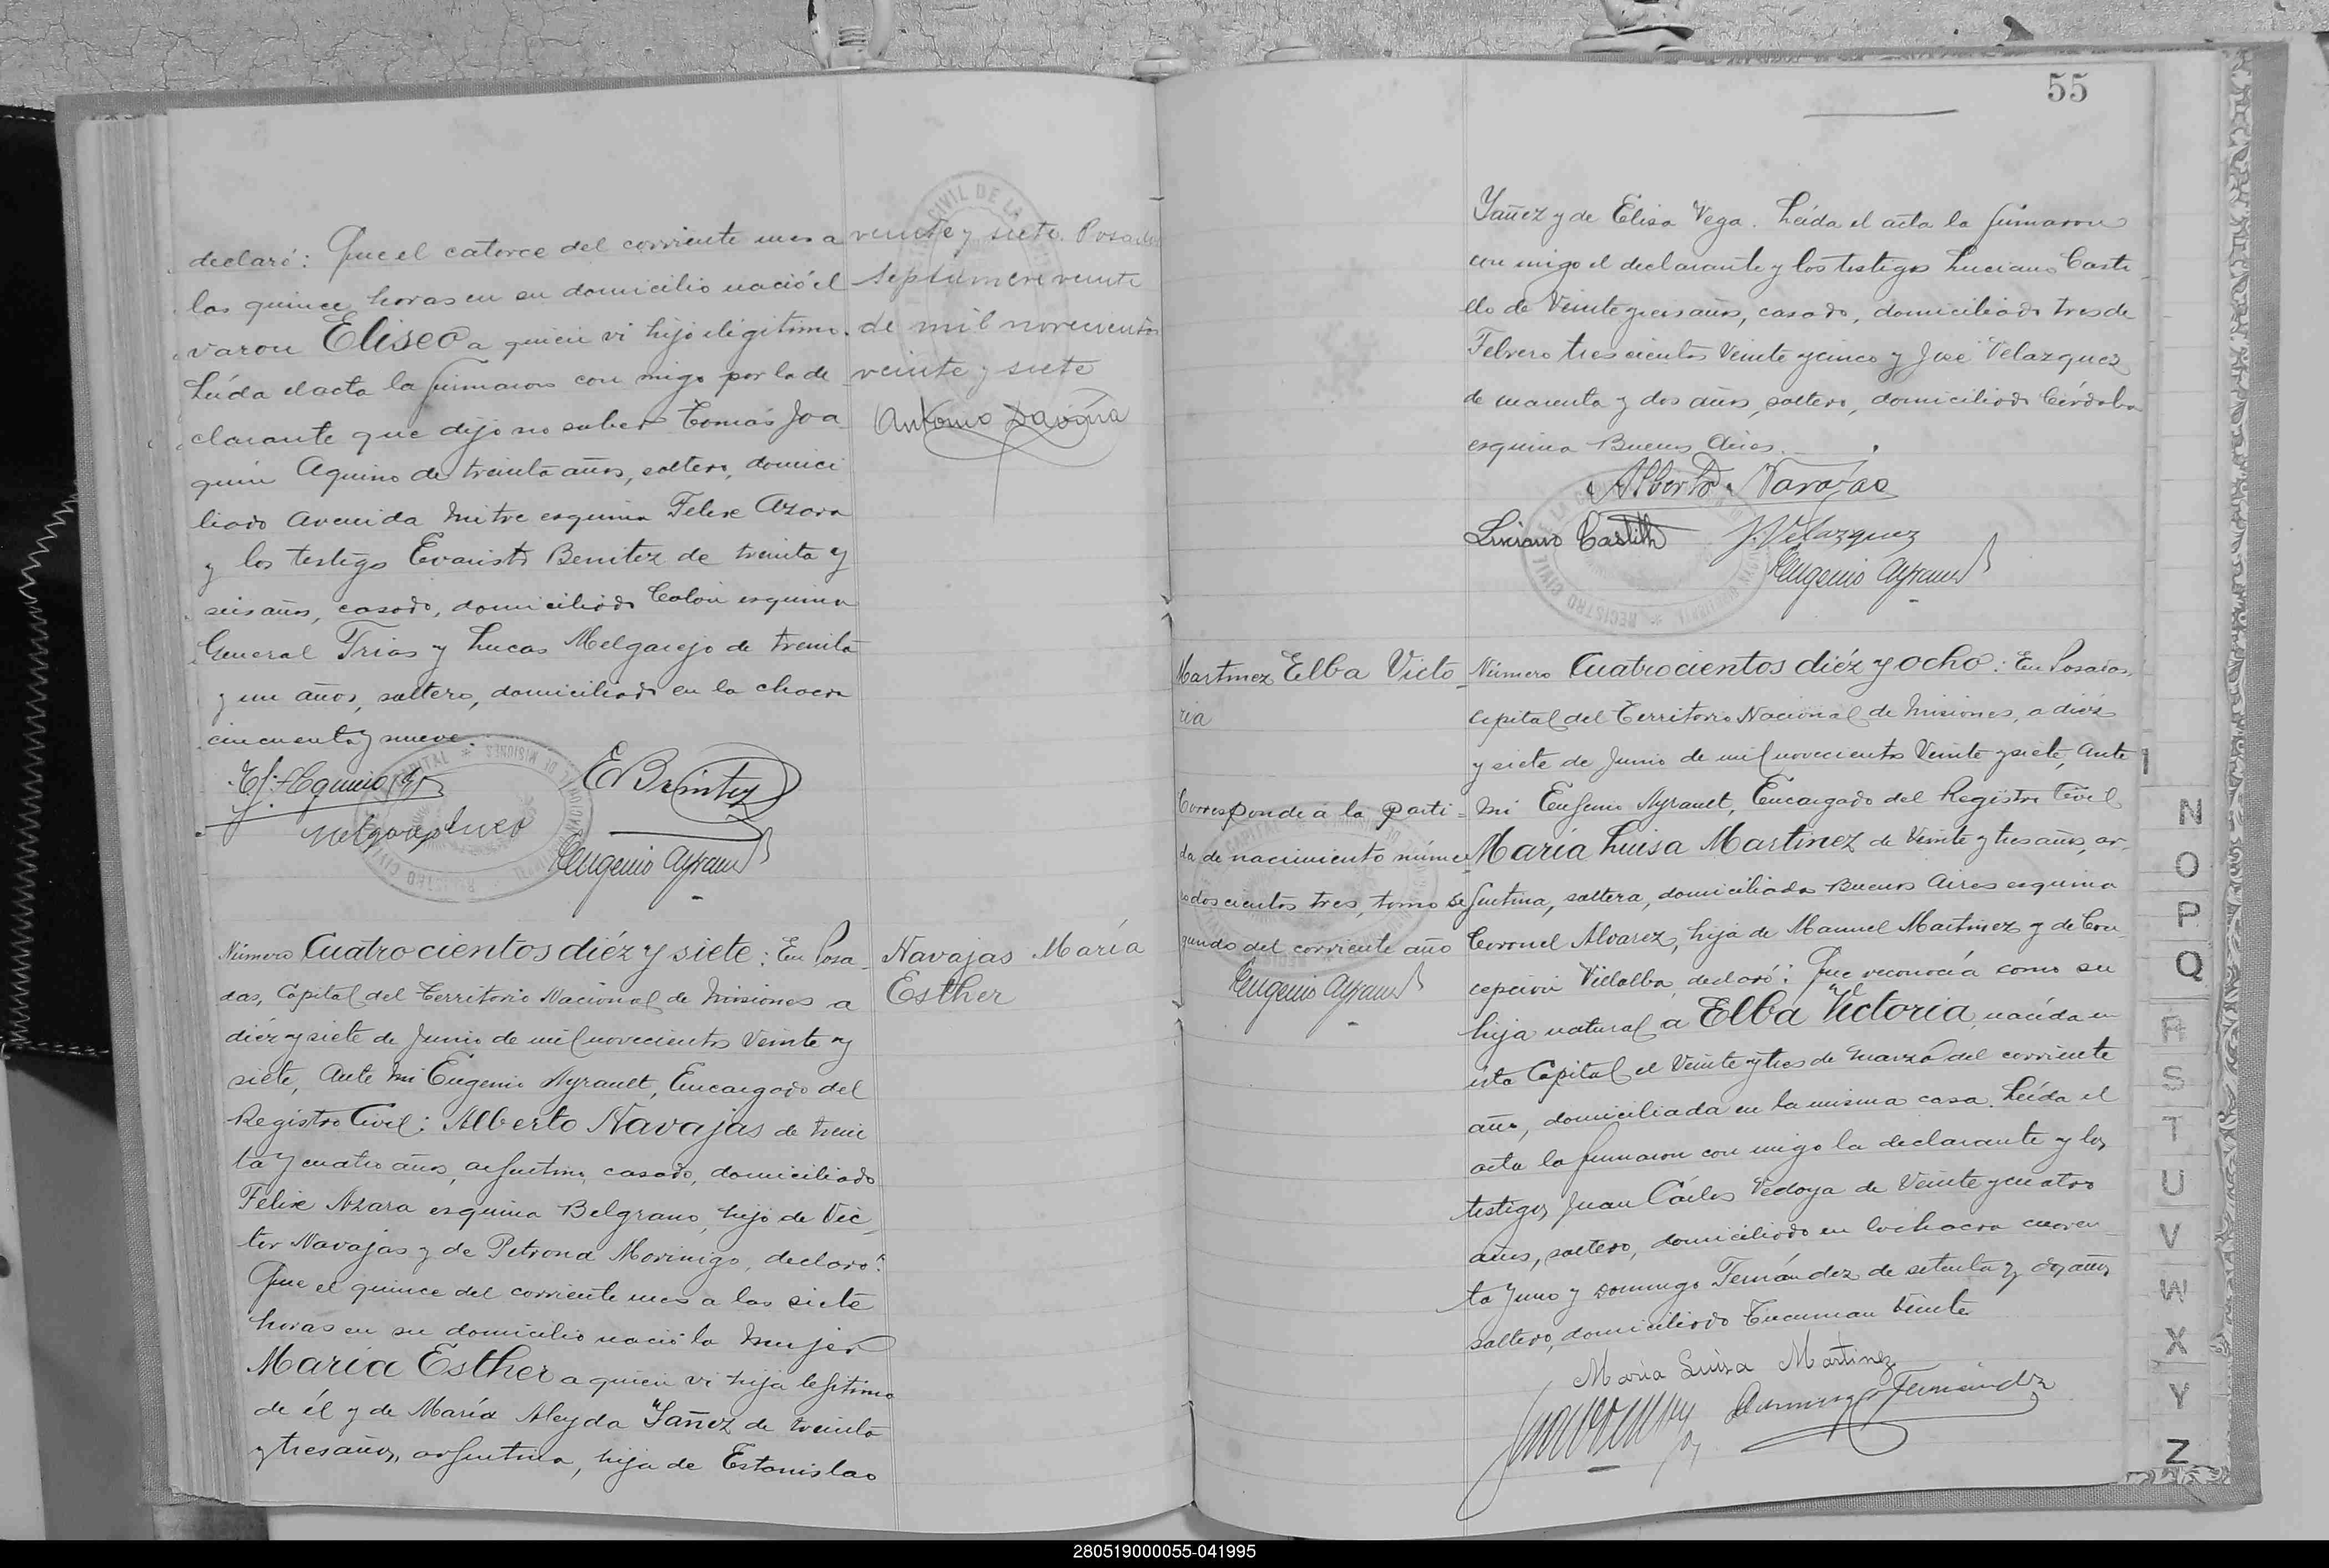 declaró: Que el catorce del corriente mes a
las quince horas en su domicilio nació el
varon Eliseo a quien vi hijo ilegitimo.
Leída el acta la firmaron con migo por la de
clarante que dijo no saber Tomás Joa
quin Aquino de treinta años, soltero, domici
liado Avenida Mitre esquina Felix Azara
y los testigos Evaristo Benitez de treinta y
seis años, casado, domiciliado Colón esquina
General Frias y Lucas Melgarejo de treinta
y un años, soltero, domiciliado en la chacra
cincuenta y nueve.
E Benitez
Melgarejo Luca
Eugenio Ayrault
veinte y siete. Posadas
septiembre veinte
de mil novecientos
veinte y siete
Antonio
Número Cuatrocientos diéz y siete: En Posa
das, Capital del Territorio Nacional de Misiones a
diéz y siete de Junio de mil novecientos Veinte y
siete, Ante mi Eugenio Ayrault, Encargado del
Registro Civil: Alberto Navajas de trein
ta y cuatro años, argentino, casado, domiciliado
Felix Azara esquina Belgrano, hijo de Vic
tor Navajas y de Petrona Morinigo, declaró:
Que el quince del corriente mes a las siete
horas en su domicilio nació la mujer
María Esther a quien vi hija legitima
de él y de María Aleyda Yañez de treinta
y tres años, argentina, hija de Estanislao
Navajas María
Esther
55
Yañez y de Elisa Vega. Leída el acta la firmaron
con migo el declarante y los testigos Luciano Casti
llo de Veinte y seis años, casado, domiciliado tres de
Febrero trescientos Veinte y cinco y José Velazquez
de cuarenta y dos años, soltero, domiciliado Córdoba
esquina Buenos Aires.
Alberto Navajas
Luciano Castillo J. Velazquez
Eugenio Ayrault
Martinez Elba Victo
ria
Corresponde a la parti
da de nacimiento núme
ro doscientos tres, tomo se
gundo del corriente año
Eugenio Ayrault
Número Cuatrocientos diéz y ocho: En Posadas,
Capital del Territorio Nacional de Misiones, a diéz
y siete de Junio de mil novecientos Veinte y siete, Ante
mi Eugenio Ayrault, Encargado del Registro Civil
María Luisa Martinez de Veinte y tres años, ar-
gentina, soltera, domiciliada Buenos Aires esquina
Coronel Alvarez, hija de Manuel Martinez y de Con
cepción Villalba, declaró: Que reconocía como su
hija natural a Elba Victoria, nacída en
esta Capital el Veinte y tres de Marzo del corriente
año, domiciliada en la misma casa. Leída el
acta la firmaron con migo la declarante y los
testigos Juan Cárlos Vedoya de Veinte y cuatro
años, soltero, domiciliado en la chacra cuaren
ta y uno y Domingo Fernández de setenta y dos años
soltero, domiciliado Tucuman Veinte
María Luisa Martinez
Domingo Fernández
N
O
P
Q
R
S
T
U
V
W
X
Y
Z
280519000055-041995